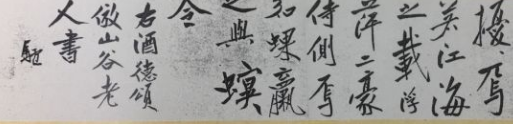 擾焉
若江海
之載浮
萍二豪
侍側焉
如蜾蠃
之與螟
令
右酒德頌
倣山谷老
人書